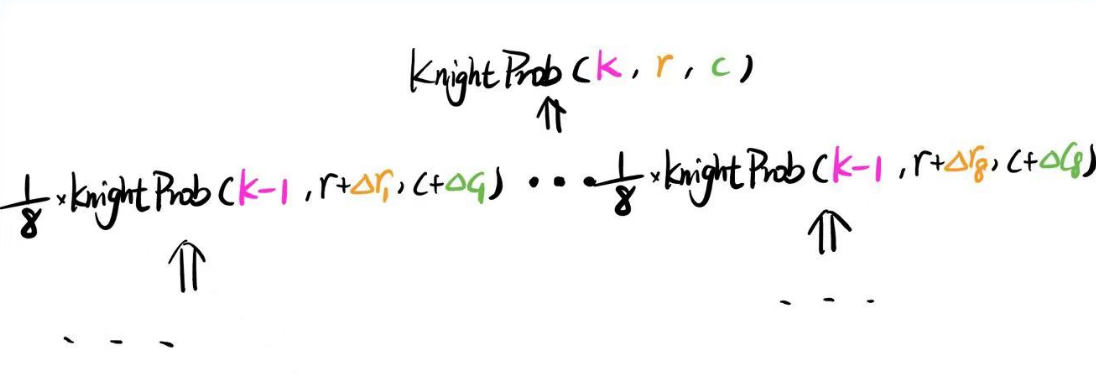 KnightProb(k, r, c)
⇑
1/8 × KnightProb(k-1, r+Δr₁, c+Δc₁) ... 1/8 × KnightProb(k-1, r+Δr₈, c+Δc₈)
⇑ ⇑
...
...